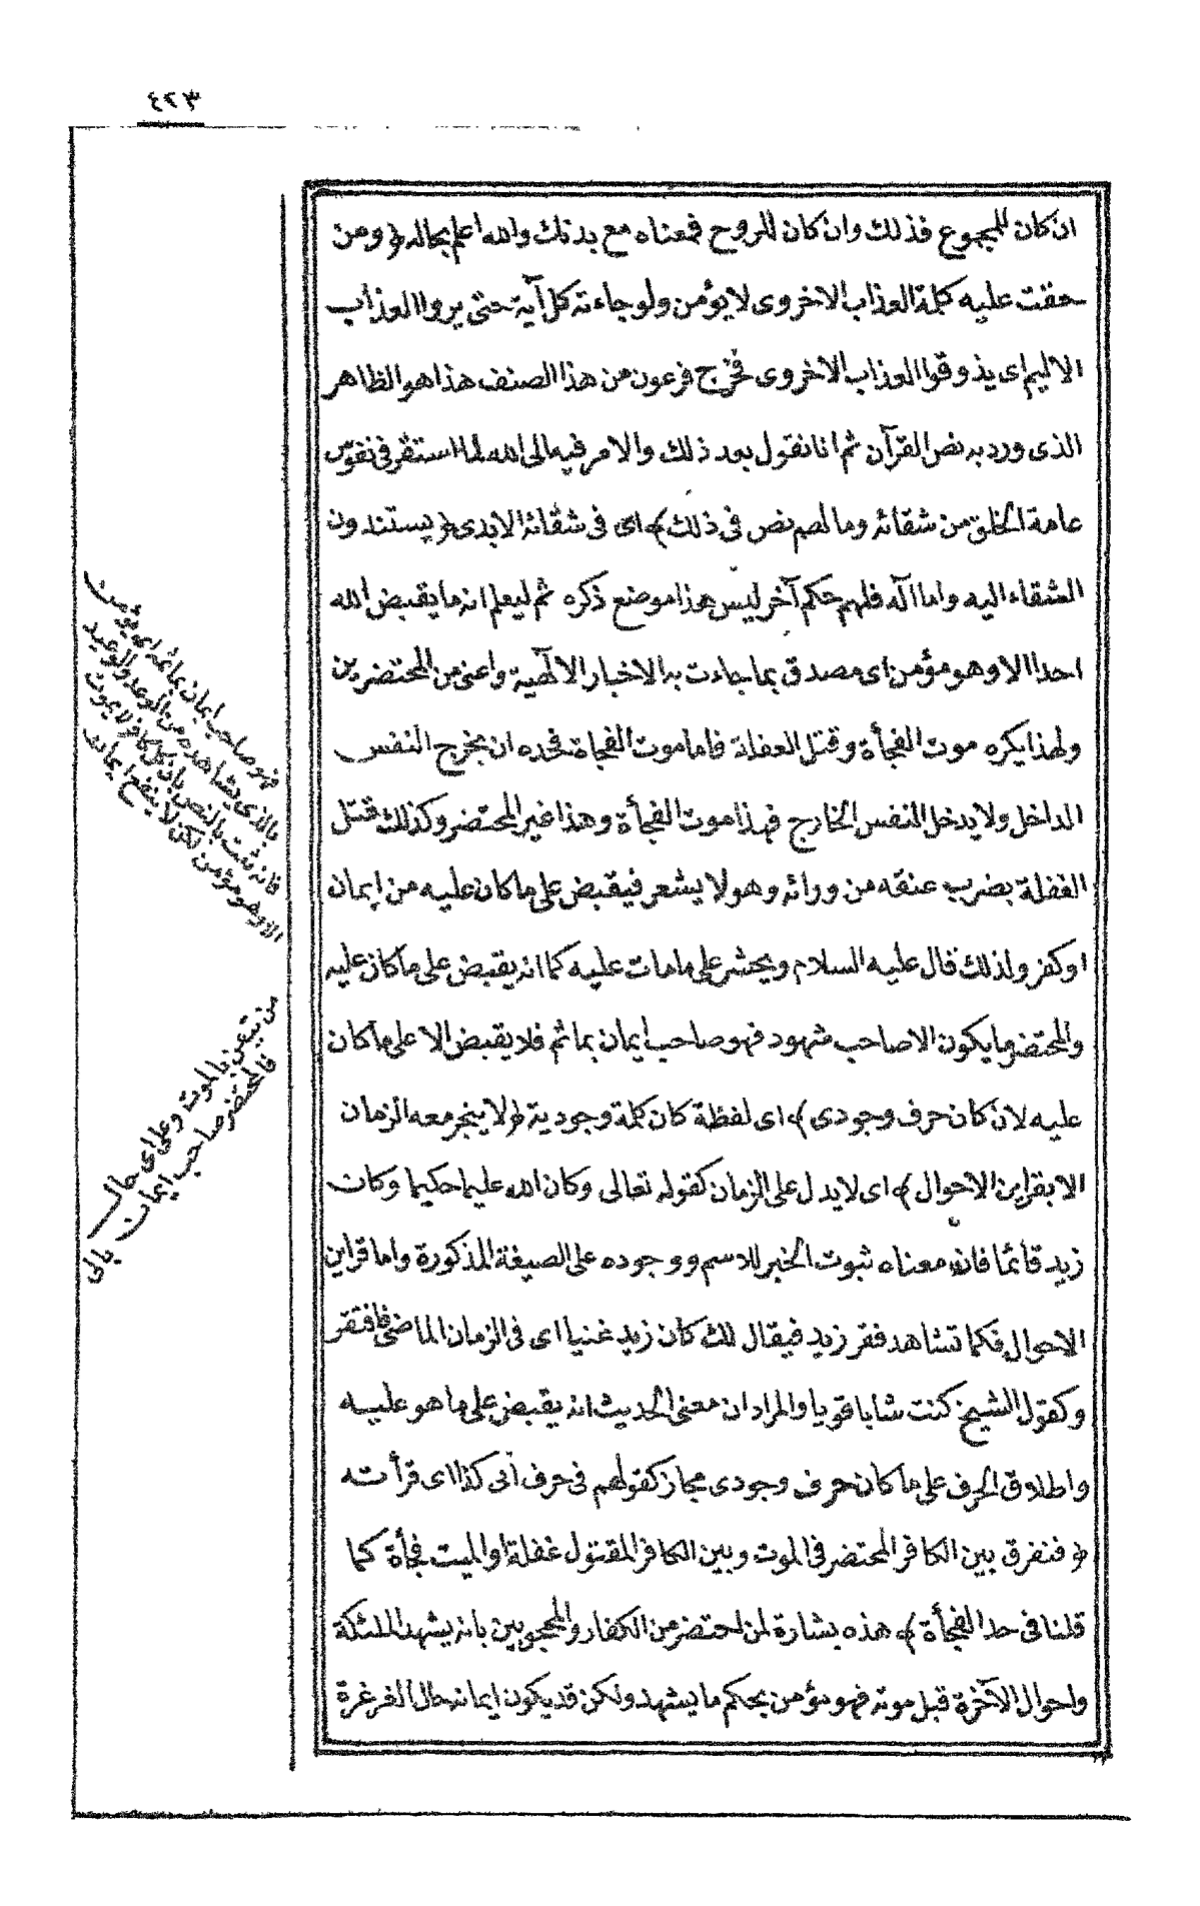 ٤٢٣
ان كان للمجموع فذلك وان كان للروح فمعناه مع بدنك والله اعلم بحاله ﴿ ومن
حقت عليه كلمة العذاب الاخروى لا يؤمن ولو جاءته كل آية حتى يروا العذاب
الاليم اى يذوقوا العذاب الاخروى فخرج فرعون من هذا الصنف هذا هو الظاهر
الذى ورد به نص القرآن ثم انا نقول بعد ذلك والامر فيه الى الله لما استقر فى نفوس
عامة الخلق من شقائه وما لهم نص فى ذلك ﴾ اى فى شقائه الابدى ﴿ يستندون
الشقاء اليه واما آله فلهم حكم آخر ليس هذا موضع ذكره ثم ليعلم انه ما يقبض الله
احدا الا وهو مؤمن اى مصدق بما جاءت به الاخبار الالٓهية واعنى من المحتضرين
ولهذا يكره موت الفجأة وقتل الغفلة فاما موت الفجاة فحده ان يخرج النفس
الداخل ولا يدخل النفس الخارج فهذا موت الفجأة وهذا غير المحتضر وكذلك قتل
الغفلة بضرب عنقه من ورائه وهو لا يشعر فيقبض على ما كان عليه من ايمان
او كفر ولذلك قال عليه السلام ويحشر على ما مات عليه كما انه يقبض على ما كان عليه
والمحتضر ما يكون الا صاحب شهود فهو صاحب ايمان بما ثم فلا يقبض الا على ما كان
عليه لان كان حرف وجودى ﴾ اى لفظة كان كلمة وجودية ﴿ لا ينجر معه الزمان
الا بقراين الاحوال ﴾ اى لا يدل على الزمان كقوله تعالى وكان الله عليما حكيما وكان
زيد قائما فان معناه ثبوت الخبر للاسم ووجوده على الصيغة المذكورة واما قراين
الاحوال فكما تشاهد فقر زيد فيقال لك كان زيد غنيا اى فى الزمان الماضى فافتقر
وكقول الشيخ كنت شابا قويا والمراد ان معنى الحديث انه يقبض على ما هو عليه
واطلاق الحرف على ما كان حرف وجودى مجاز كقولهم فى حرف أبى كذا اى قرأته
﴿ فنفرق بين الكافر المحتضر فى الموت وبين الكافر المقتول غفلة او الميت فجأة كما
قلنا فى حد الفجأة ﴾ هذه بشارة لمن احتضر من الكفار والمحجوبين بانه يشهد الملئكة
واحوال الآخرة قبل موته فهو مؤمن بحكم ما يشهد ولكن قد يكون ايمانه حال الغرغرة
فهو صاحب ايمان بما ثمه اى يؤمن
بالذى يشاهده من الوعد والوعيد
فانه ثبت بالنص بان كل كافر لا يموت
الا وهو مؤمن لكن لا ينفع ايمانه
من بالموت وعلى اى حال
فالمحتضر صاحب ايمان